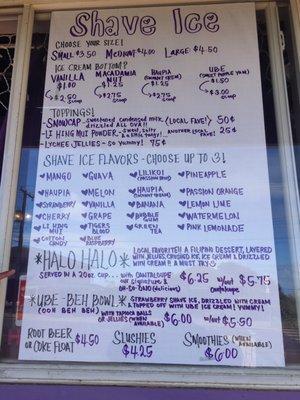 Shave Ice
CHOOSE YOUR SIZE!
SMALL $3.50 MEDIUM $4.00 LARGE $4.50
ICE CREAM BOTTOM?
VANILLA
$1.00
$2.50 SCOOP
MACADAMIA
NUT
$1.25
$2.75 SCOOP
HAUPIA
(COCONUT CREAM)
$1.25
$2.75 SCOOP
UBE
(SWEET PURPLE YAM)
$1.50
$3.00 SCOOP
TOPPINGS!
~SNOWCAP~ sweetened condensed milk, drizzled ALL OVA!! (LOCAL FAVE!) 50¢
~LI HING MUI POWDER~ sweet, salty ANOTHER LOCAL FAVE! 25¢
~LYCHEE JELLIES~ SO YUMMY! 75¢
SHAVE ICE FLAVORS - CHOOSE UP TO 3!
♥MANGO ♥GUAVA ♥LILIKOI (PASSION FRUIT) ♥PINEAPPLE
♥HAUPIA ♥MELON ♥HAUPIA (COCONUT CREAM) ♥PASSION ORANGE
♥STRAWBERRY ♥VANILLA ♥BANANA ♥LEMON LIME
♥CHERRY ♥GRAPE ♥BUBBLE GUM ♥WATERMELON
♥LI HING MUI ♥TIGERS BLOOD ♥GREEN TEA ♥PINK LEMONADE
♥COTTON CANDY ♥BLUE RASPBERRY
*HALO HALO*
LOCAL FAVORITE!! A FILIPINO DESSERT, LAYERED
WITH JELLIES, CRUSHED ICE, ICE CREAM & DRIZZLED
WITH CREAM!! A MUST TRY
SERVED IN A 20oz. CUP... WITH CANTALOUPE $6.25 w/out cantaloupe $5.75
*UBE-BEH BOWL*
(OOH BEH BEH)
STRAWBERRY SHAVE ICE, DRIZZLED WITH CREAM
& TOPPED OFF WITH UBE ICE CREAM! YUMMY!
WITH TAPIOCA BALLS OR JELLIES (WHEN AVAILABLE) $6.00 w/out $5.50
ROOT BEER
OR COKE FLOAT $4.50
SLUSHIES
$4.25
SMOOTHIES (WHEN AVAILABLE)
$6.00